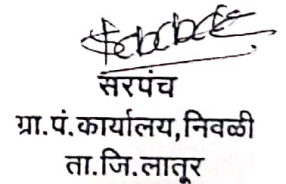 सरपंच
ग्रा.पं.कार्यालय,निवळी
ता.जि.लातूर